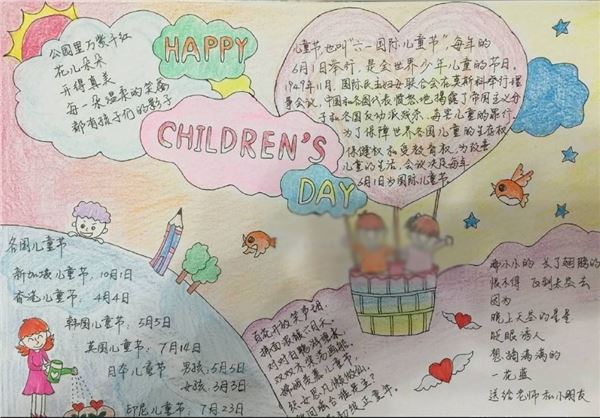 公园里万紫千红
花儿朵朵
开得真美
每一朵温柔的笑容
都有孩子们的影子
HAPPY
CHILDREN'S
DAY
儿童节，也叫“六一国际儿童节”，每年的
6月1日举行，是全世界少年儿童的节日。
1949年11月，国际民主妇女联合会在莫斯科举行理
事会议，中国和各国代表愤怒地揭露了帝国主义分
子和各国反动派残杀、毒害儿童的罪行。
为了保障世界各国儿童的生存权
保健权和受教育权，为改善
儿童的生活，会议决定每年
6月1日为国际儿童节
各国儿童节
新加坡儿童节：10月1日
香港儿童节：4月4日
韩国儿童节：5月5日
英国儿童节：7月14日
日本儿童节 男孩：5月5日
女孩：3月3日
印尼儿童节：7月23日
百花开放笑声甜
拂面
对对
双双
六月天
儿童年
那小小的 长了翅膀的
恨不得 飞到天空去
因为
晚上天空的星星
眨眼诱人
想摘满满的
一花篮
送给老师和小朋友